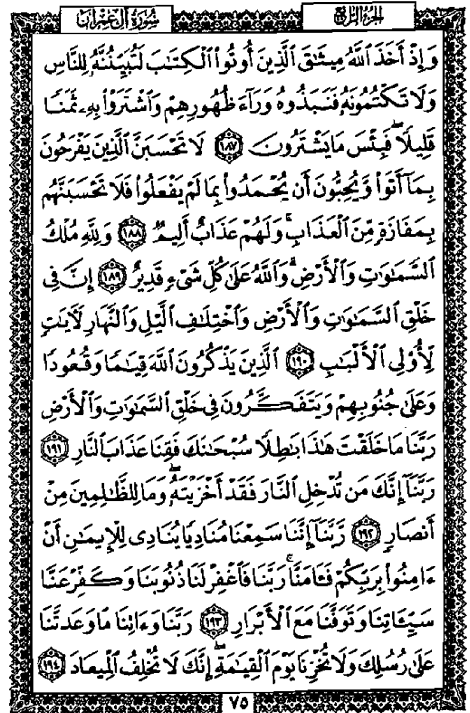 سورة آل عمران
الجزء الرابع
وَإِذْ أَخَذَ ٱللَّهُ مِيثَٰقَ ٱلَّذِينَ أُوتُوا۟ ٱلْكِتَٰبَ لَتُبَيِّنُنَّهُۥ لِلنَّاسِ
وَلَا تَكْتُمُونَهُۥ فَنَبَذُوهُ وَرَآءَ ظُهُورِهِمْ وَٱشْتَرَوْا۟ بِهِۦ ثَمَنًا
قَلِيلًا ۖ فَبِئْسَ مَا يَشْتَرُونَ ١٨٧ لَا تَحْسَبَنَّ ٱلَّذِينَ يَفْرَحُونَ
بِمَآ أَتَوا۟ وَّيُحِبُّونَ أَن يُحْمَدُوا۟ بِمَا لَمْ يَفْعَلُوا۟ فَلَا تَحْسَبَنَّهُم
بِمَفَازَةٍ مِّنَ ٱلْعَذَابِ ۖ وَلَهُمْ عَذَابٌ أَلِيمٌ ١٨٨ وَلِلَّهِ مُلْكُ
ٱلسَّمَٰوَٰتِ وَٱلْأَرْضِ ۗ وَٱللَّهُ عَلَىٰ كُلِّ شَىْءٍ قَدِيرٌ ١٨٩ إِنَّ فِى
خَلْقِ ٱلسَّمَٰوَٰتِ وَٱلْأَرْضِ وَٱخْتِلَٰفِ ٱلَّيْلِ وَٱلنَّهَارِ لَـَٔايَٰتٍ
لِّأُو۟لِى ٱلْأَلْبَٰبِ ١٩٠ ٱلَّذِينَ يَذْكُرُونَ ٱللَّهَ قِيَٰمًا وَقُعُودًا
وَعَلَىٰ جُنُوبِهِمْ وَيَتَفَكَّرُونَ فِى خَلْقِ ٱلسَّمَٰوَٰتِ وَٱلْأَرْضِ
رَبَّنَا مَا خَلَقْتَ هَٰذَا بَٰطِلًا سُبْحَٰنَكَ فَقِنَا عَذَابَ ٱلنَّارِ ١٩١
رَبَّنَآ إِنَّكَ مَن تُدْخِلِ ٱلنَّارَ فَقَدْ أَخْزَيْتَهُۥ ۖ وَمَا لِلظَّٰلِمِينَ مِنْ
أَنصَارٍ ١٩٢ رَّبَّنَآ إِنَّنَا سَمِعْنَا مُنَادِيًا يُنَادِى لِلْإِيمَٰنِ أَنْ
ءَامِنُوا۟ بِرَبِّكُمْ فَـَٔامَنَّا ۚ رَبَّنَا فَٱغْفِرْ لَنَا ذُنُوبَنَا وَكَفِّرْ عَنَّا
سَيِّـَٔاتِنَا وَتَوَفَّنَا مَعَ ٱلْأَبْرَارِ ١٩٣ رَبَّنَا وَءَاتِنَا مَا وَعَدتَّنَا
عَلَىٰ رُسُلِكَ وَلَا تُخْزِنَا يَوْمَ ٱلْقِيَٰمَةِ ۗ إِنَّكَ لَا تُخْلِفُ ٱلْمِيعَادَ ١٩٤
٧٥